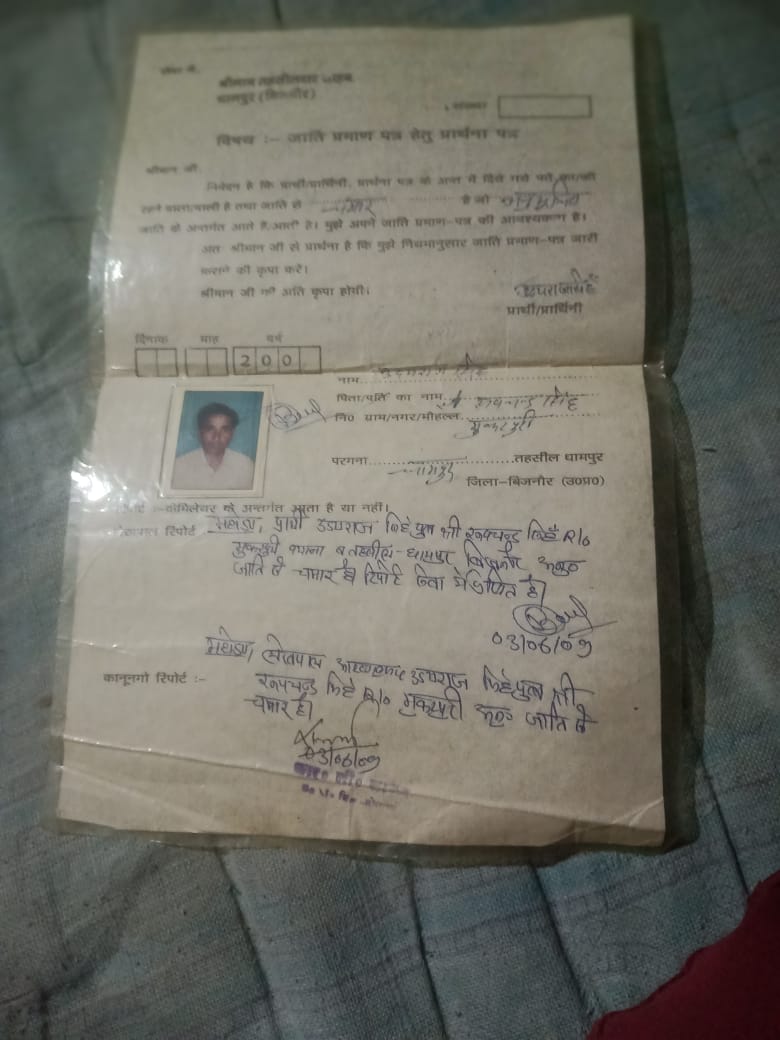 सेवा में,
श्रीमान तहसीलदार साहब
धामपुर (बिजनौर)
विषय :- जाति प्रमाण पत्र हेतु प्रार्थना पत्र
श्रीमान जी,
निवेदन है कि प्रार्थी/प्रार्थिनी, प्रार्थना पत्र के अन्त में दिये गये पते का/की
रहने वाला/वाली है तथा जाति से चमार है जो
जाति के अन्तर्गत आते है/आती है। मुझे अपने जाति प्रमाण-पत्र की आवश्यकता है।
अतः श्रीमान जी से प्रार्थना है कि मुझे नियमानुसार जाति प्रमाण-पत्र जारी
कराने की कृपा करें।
श्रीमान जी की अति कृपा होगी।
प्रार्थी/प्रार्थिनी
दिनांक माह वर्ष
200
नाम
पिता/पति का नाम सिंह
नि0 ग्राम/नगर/मौहल्ला
परगना धामपुर तहसील धामपुर
जिला-बिजनौर (उ0प्र0)
रिपोर्ट :- क्रीमिलेयर के अन्तर्गत आता है या नहीं।
लेखपाल रिपोर्ट :- महोदय, प्रार्थी उदयराज सिंह पुत्र श्री रूपचन्द सिंह R/o
व तहसील-धामपुर, बिजनौर
जाति से चमार है रिपोर्ट सेवा में प्रेषित है।
03/06/09
महोदय, लेखपाल उदयराज सिंह पुत्र श्री
कानूनगो रिपोर्ट :- रूपचन्द सिंह R/o जाति से
चमार है।
03/06/09